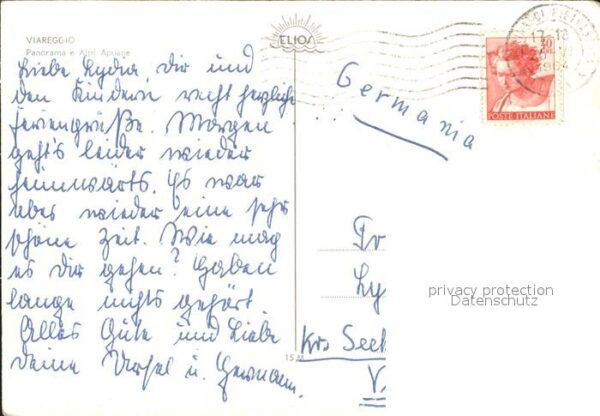 VIAREGGIO
Panorama e Alpi Apuane
ELIOS
Liebe Lydia, dir und
den Kindern recht herzliche
Feriengrüße. Morgen
geht's leider wieder
heimwärts. Es war
aber wieder eine sehr
schöne Zeit. Wie mag
es dir gehen? Haben
lange nichts gehört.
Alles Gute und Liebe
deine Ursel u. Hermann.
Germania
30
POSTE ITALIANE
17-18
Ly
privacy protection
Datenschutz
Krs
15 M